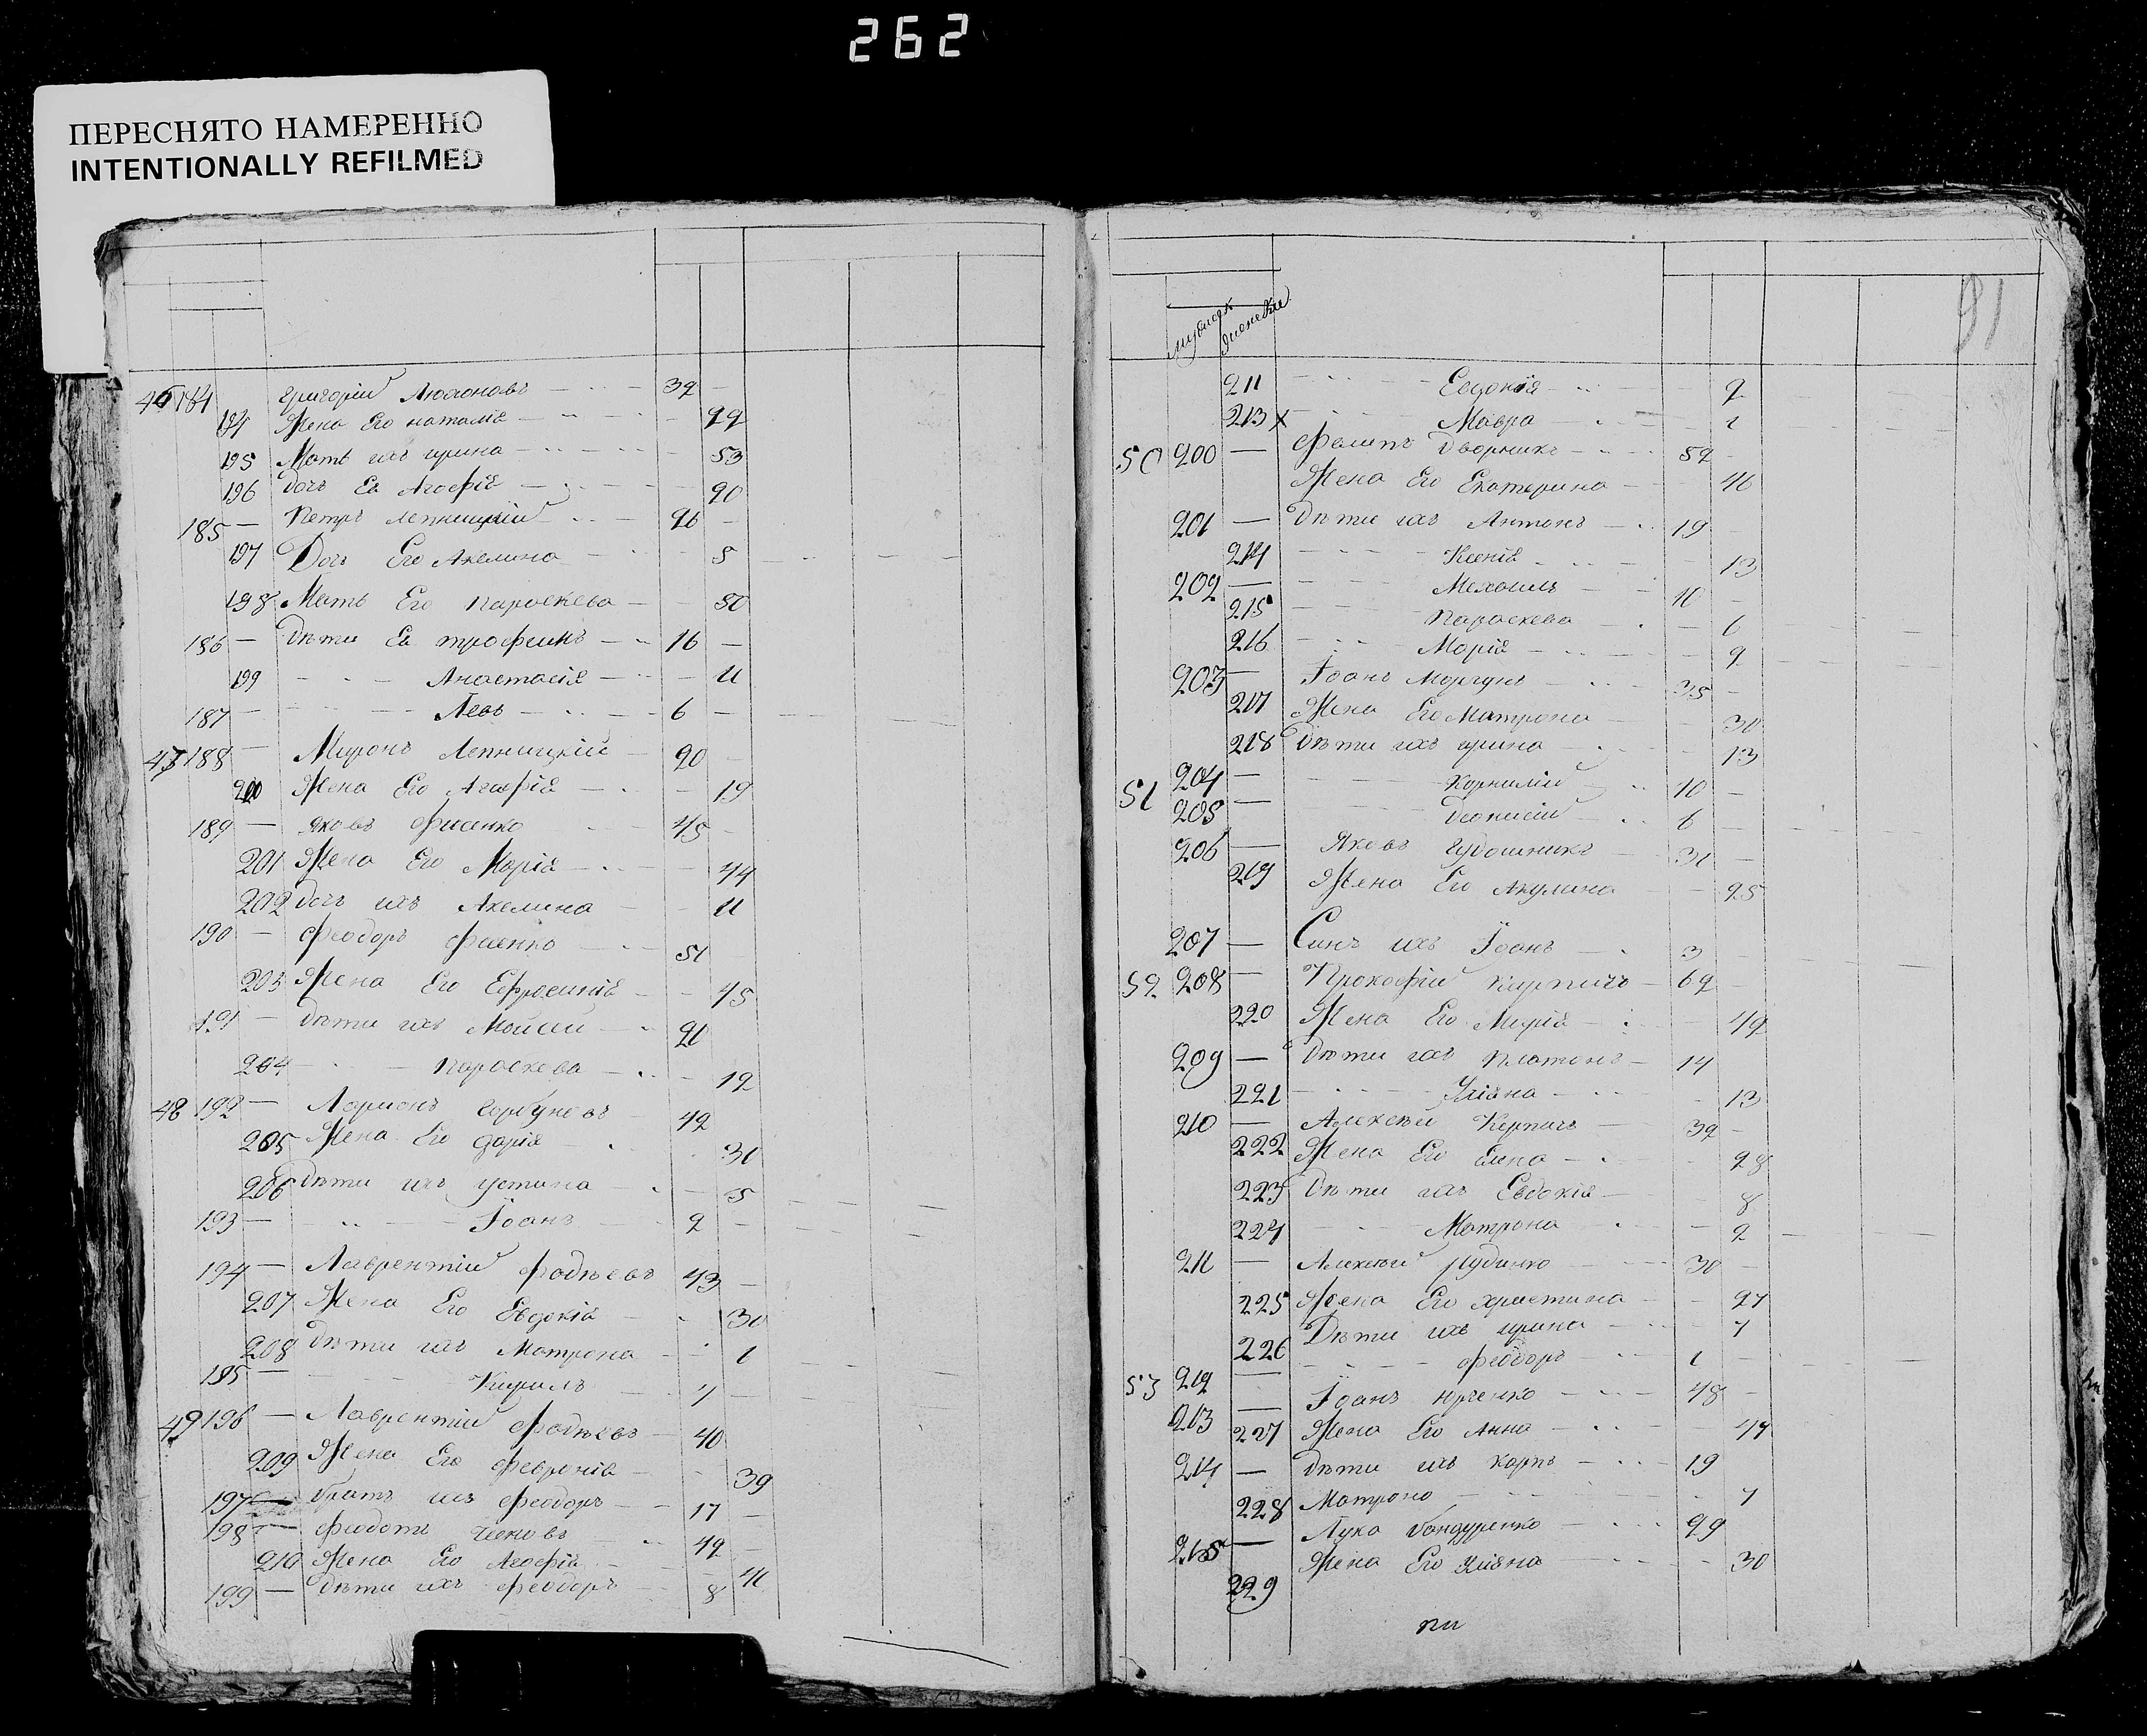 262
ПЕРЕСНЯТО НАМЕРЕННО
INTENTIONALLY REFILMED
46 184 Григорій 32 -
194 Жена Его наталія - 22
195 Мать ихъ ирина - 53
196 Дочь Ея Агафія - 20
185 - Петръ Лепницкій - 26 -
197 Дочь Его Акелина - 5
198 Мать Его Параскева - 50
186 - Дѣти Ея трофимъ - 16 -
199 - Анастасія - 11
187 - Левъ - 6 -
47 188 - Миронъ Лепницкій 20 -
200 Жена Его Агафія - 19
189 - Яковъ Фисенко 45 -
201 Жена Его Марія - 44
202 Дочь ихъ Акелина - 11
190 - Феодоръ Фисенко - 51
203 Жена Его Ефросинія - 45
191 - Дѣти ихъ Моисей - 21
204 - Параскева - 12
48 192 - Ларионъ Горбуновъ 42
205 Жена Его дарія - 30
206 Дѣти ихъ устина - 5
193 - Іоанъ - 2 -
194 - Лаврентій Фадѣевъ 43 -
207 Жена Его Евдокія - 30
208 Дѣти ихъ Матрона - 1
195 - Кирилъ - 7 -
49 196 - Лаврентій Фадѣевъ - 40
209 Жена Его Февронія - 39
197 - братъ ихъ Феодоръ - 17 -
198 - Феодотъ 42 -
210 Жена Его Агафія - 41
199 - Дѣти ихъ Феодоръ 8
91
мужеск женски
211 - Евдокія - 2
213 x - Мавра - 1
50 200 - Филипъ Дворникъ - 52 -
Жена Его Екатерина - 46
201 - Дѣти ихъ Антонъ - 19 -
214 - Ксенія - 13
202 - Механлъ - 10 -
215 - Параскева - 6
216 - Марія - 2
203 - Іоанъ Моргунъ - 35 -
217 Жена Его Матрона - 30
218 Дѣти ихъ ирина - 13
51 204 - Корнилій - 10 -
205 - Деонисій - 6 -
206 - Яковъ Гудошникъ 31 -
219 Жена Его Акулина - 25
207 - Синъ ихъ Іоанъ - 3 -
52 208 - Прокофій Кирпичъ - 62 -
220 Жена Его Мирія - 42
209 - Дѣти ихъ Платонъ - 14
221 - Уліяна - 13
210 - Алексѣй Керпичъ - 32 -
222 Жена Его Елена - 28
223 Дѣти ихъ Евдокія - 8
224 - Матрона - 2
211 - Алексѣй Рудинко - 30 -
225 Жена Его христина - 27
226 Дѣти ихъ ирина - 7
53 212 - Феодоръ - 1 -
213 - Іоанъ юрченко - 48 -
227 Жена Его Анна - 44
214 - Дѣти ихъ Карпъ - 19
228 Матрона - 7
215 - Лука бандуренко - 29
229 Жена Его Уліяна - 30